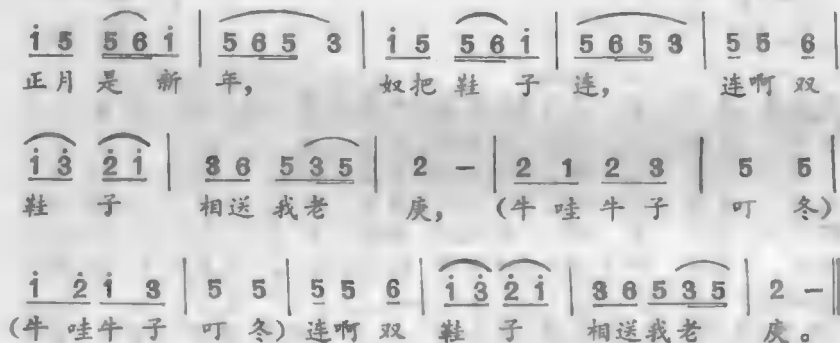 i 5 5 6 i | 5 6 5 3 | i 5 5 6 i | 5 6 5 3 | 5 5 6 |
正月是新年，奴把鞋子连，连啊双
i 3 2 i | 3 6 5 3 5 | 2 - | 2 1 2 3 | 5 5 |
鞋子相送我老庚，（牛哇牛子叮冬）
i 2 i 3 | 5 5 | 5 5 6 | i 3 2 i | 3 6 5 3 5 | 2 - ‖
（牛哇牛子叮冬）连啊双鞋子相送我老庚。